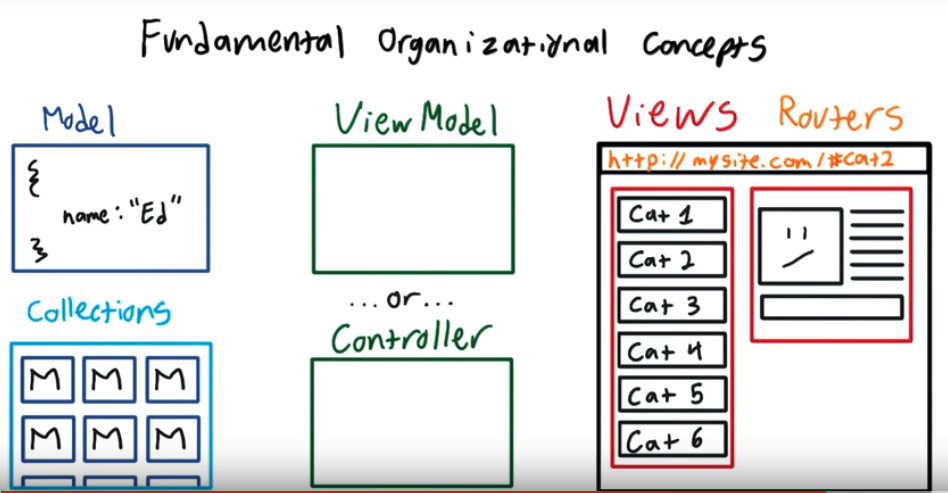 Fundamental Organizational Concepts
Model
{
name: "Ed"
}
Collections
M M M
M M M
ViewModel
... or ...
Controller
Views
Routers
http://mysite.com/#cat2
Cat 1
Cat 2
Cat 3
Cat 4
Cat 5
Cat 6